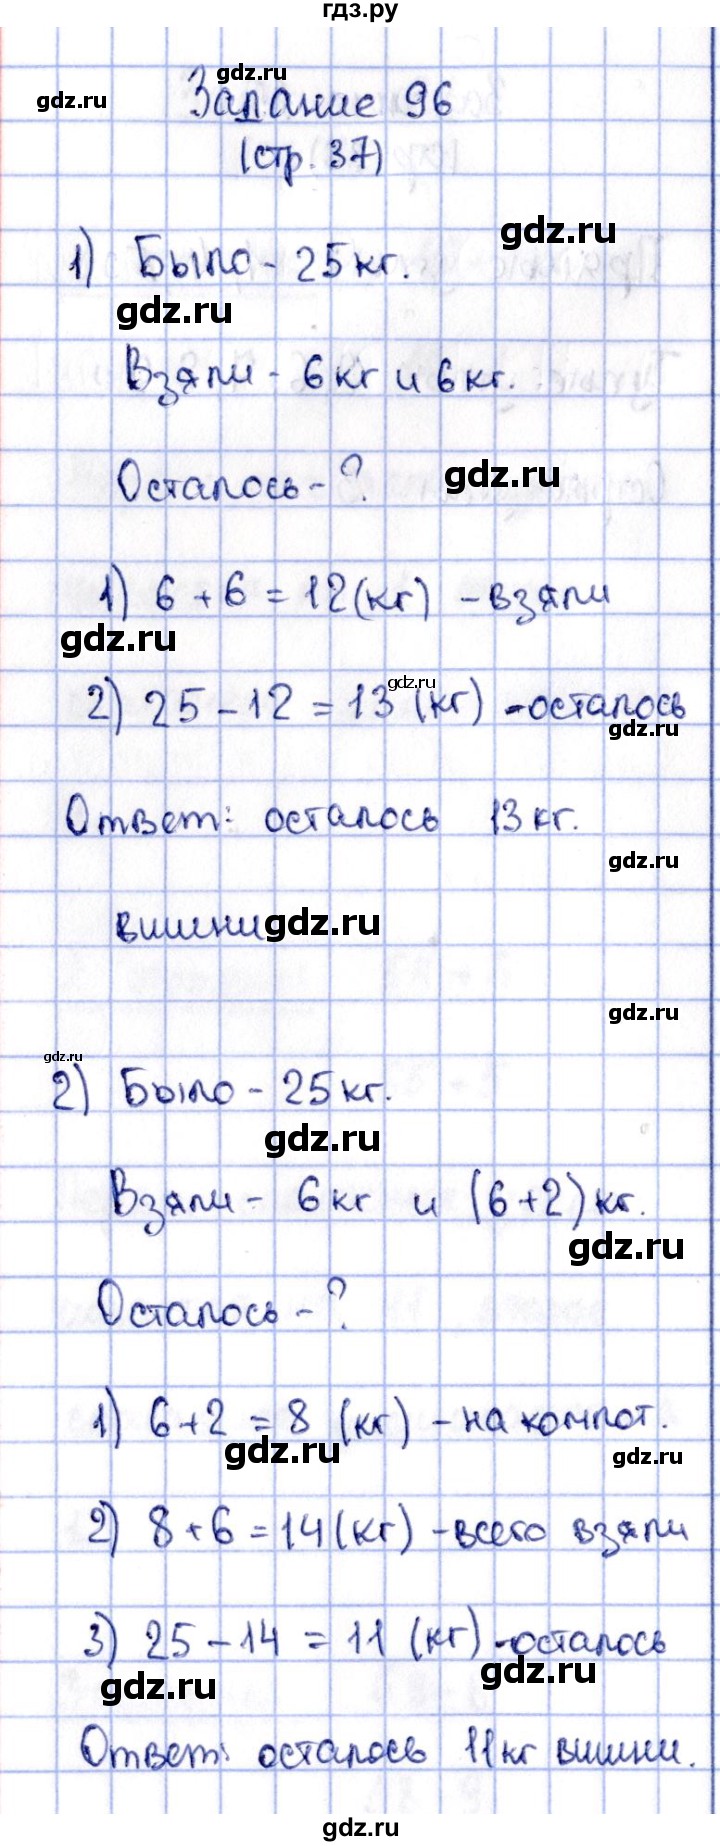 гдз.ру
gdz.ru
gdz.ru
Задание 96
(стр. 37)
gdz.ru
1) Было - 25 кг.
gdz.ru
Взяли - 6 кг и 6 кг.
Осталось - ?
gdz.ru
1) 6 + 6 = 12 (кг) - взяли
gdz.ru
gdz.ru
2) 25 - 12 = 13 (кг) - осталось
gdz.ru
Ответ: осталось 13 кг.
gdz.ru
вишни
gdz.ru
gdz.ru
gdz.ru
2) Было - 25 кг.
gdz.ru
Взяли - 6 кг и (6+2) кг.
gdz.ru
Осталось - ?
1) 6+2 = 8 (кг) - на компот.
gdz.ru
gdz.ru
2) 8+6 = 14 (кг) - всего взяли
3) 25 - 14 = 11 (кг) - осталось
gdz.ru
gdz.ru
Ответ: осталось 11 кг вишни.
gdz.ru